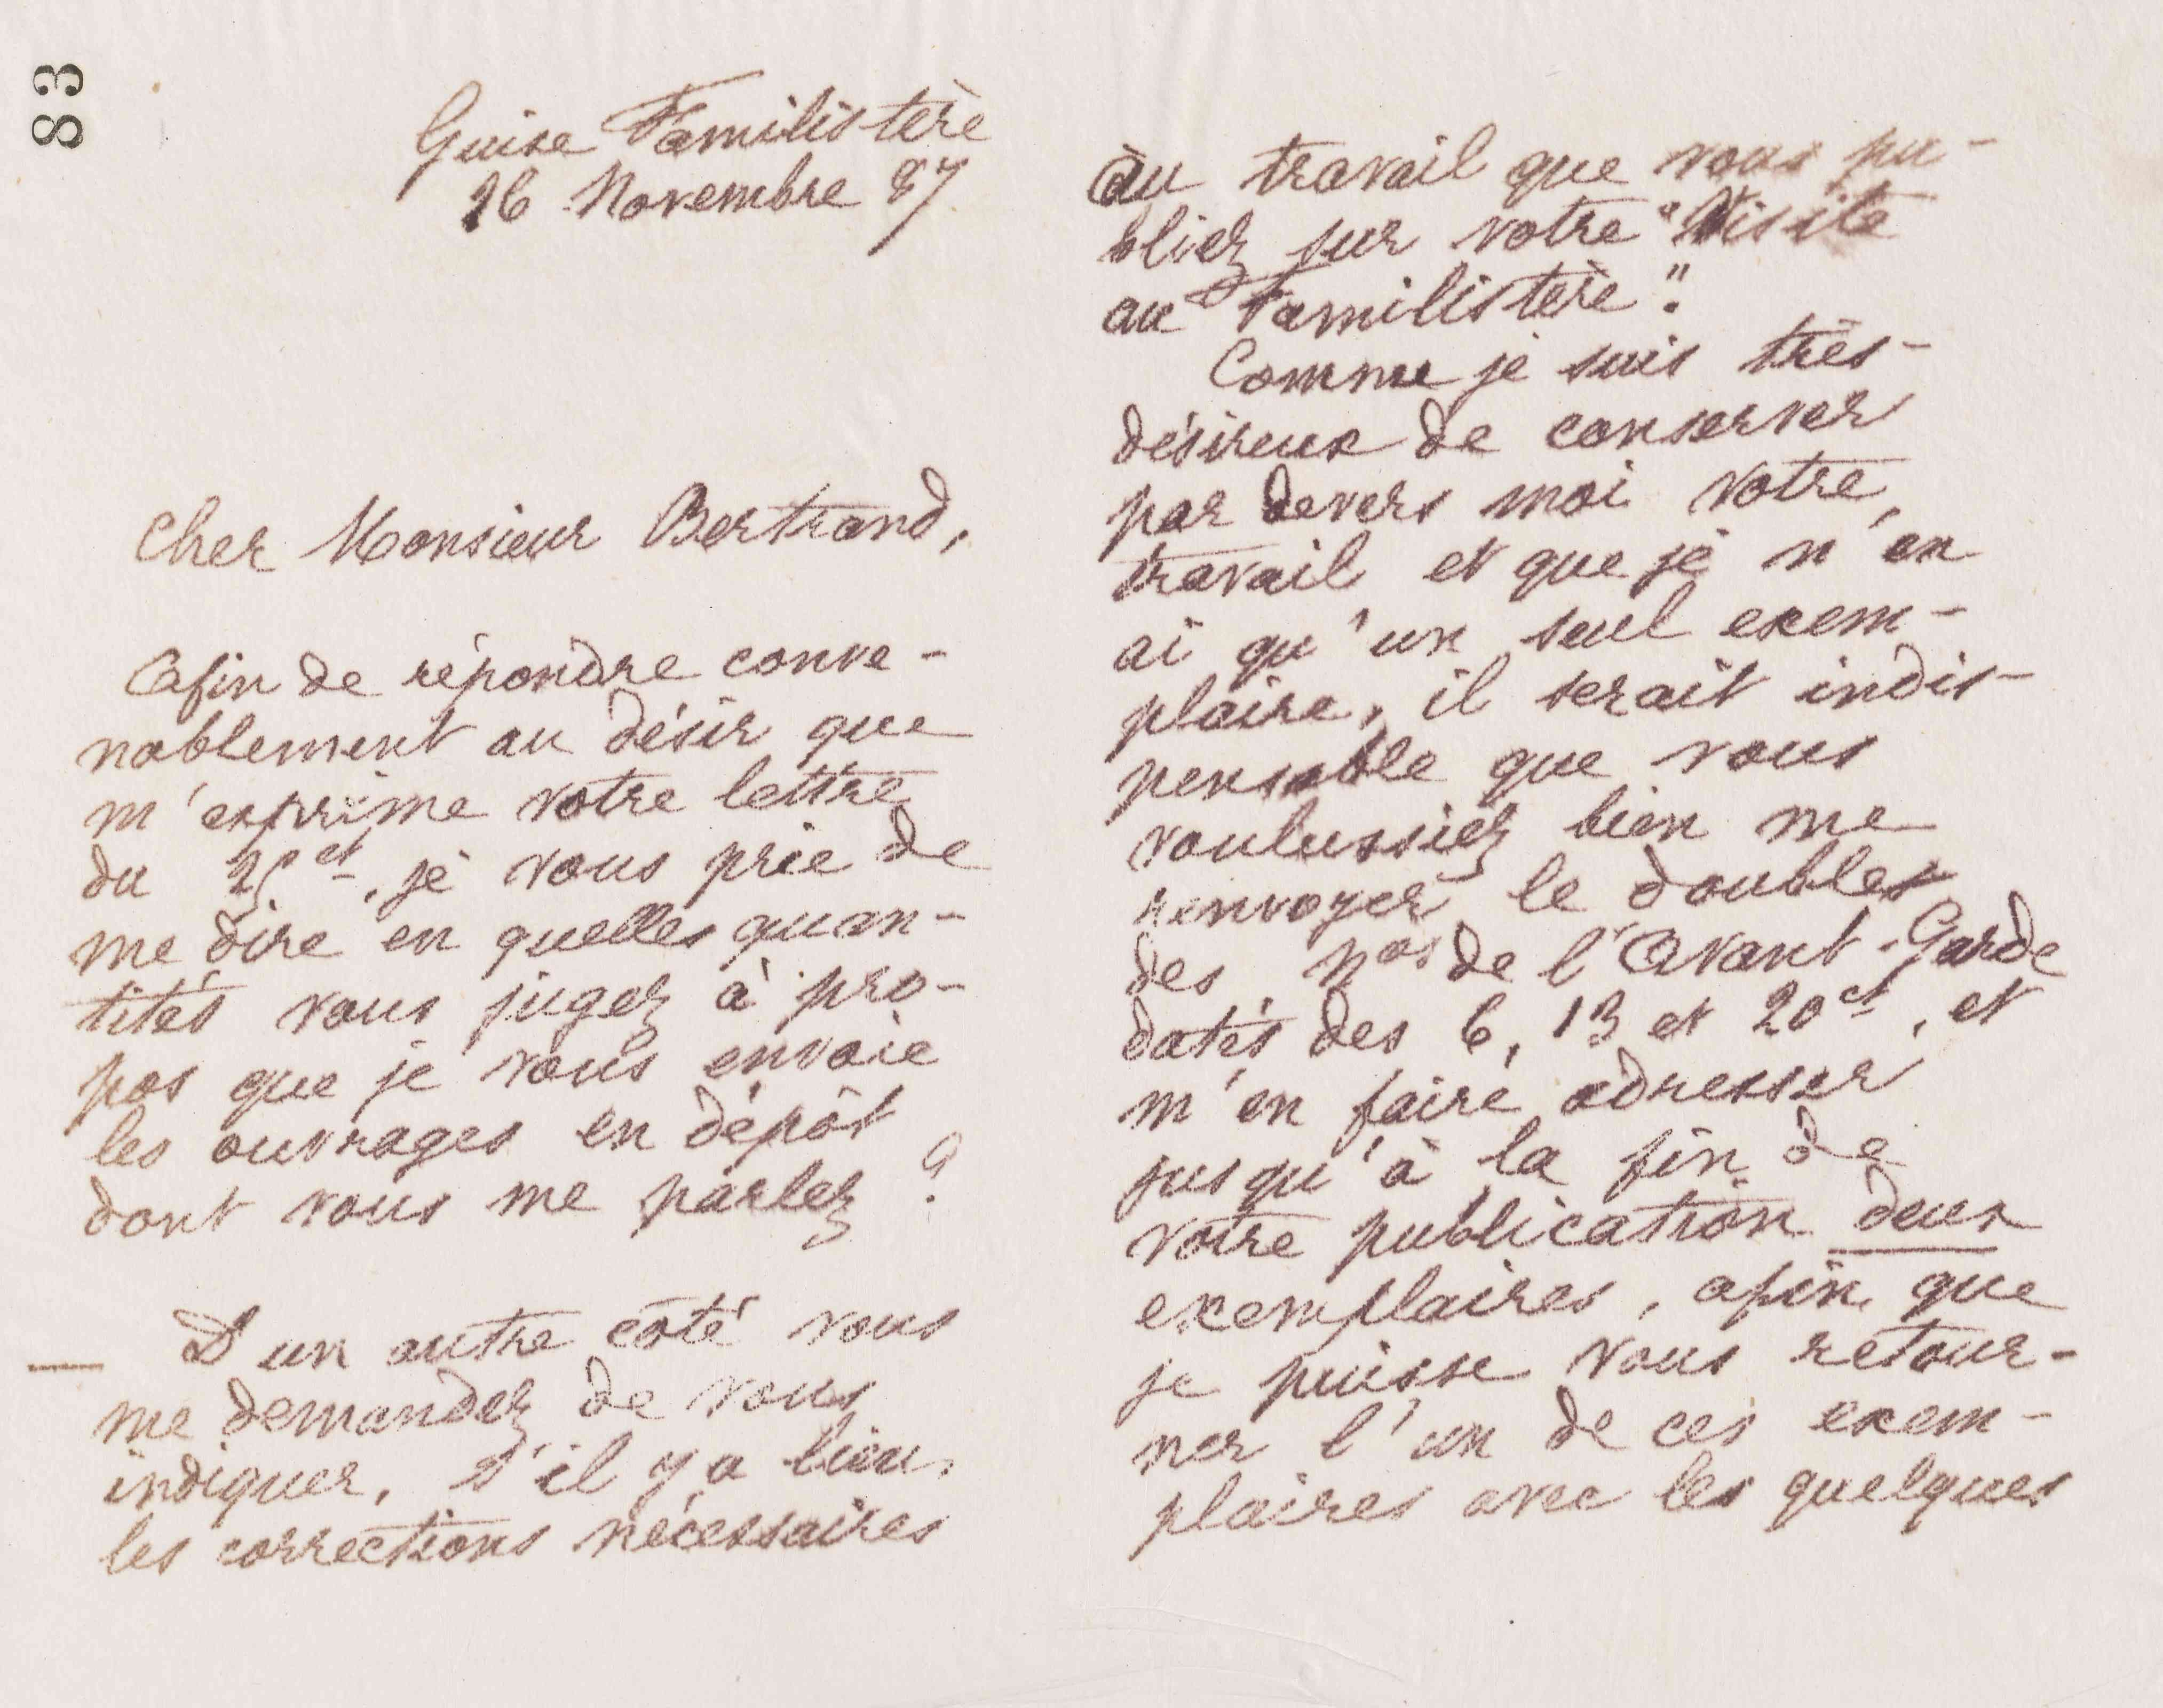 83
Guise Familistère
26 Novembre 87
Cher Monsieur Bertrand,
Afin de répondre conve-
nablement au désir que
m'exprime votre lettre
du 25 ct, je vous prie de
me dire en quelles quan-
tités vous jugez à pro-
pos que je vous envoie
les ouvrages en dépôt
dont vous me parlez ?
— D'un autre côté vous
me demandez de vous
indiquer, s'il y a lieu,
les corrections nécessaires
au travail que vous pu-
bliez sur votre "Visite
au Familistère".
Comme je suis très-
désireux de conserver
par devers moi votre
travail et que je n'en
ai qu'un seul exem-
plaire, il serait indis-
pensable que vous
voulussiez bien me
renvoyer le double
des nos de l'Avant-Garde
datés des 6, 13 et 20 ct, et
m'en faire adresser
jusqu'à la fin de
votre publication deux
exemplaires, afin que
je puisse vous retour-
ner l'un de ces exem-
plaires avec les quelques